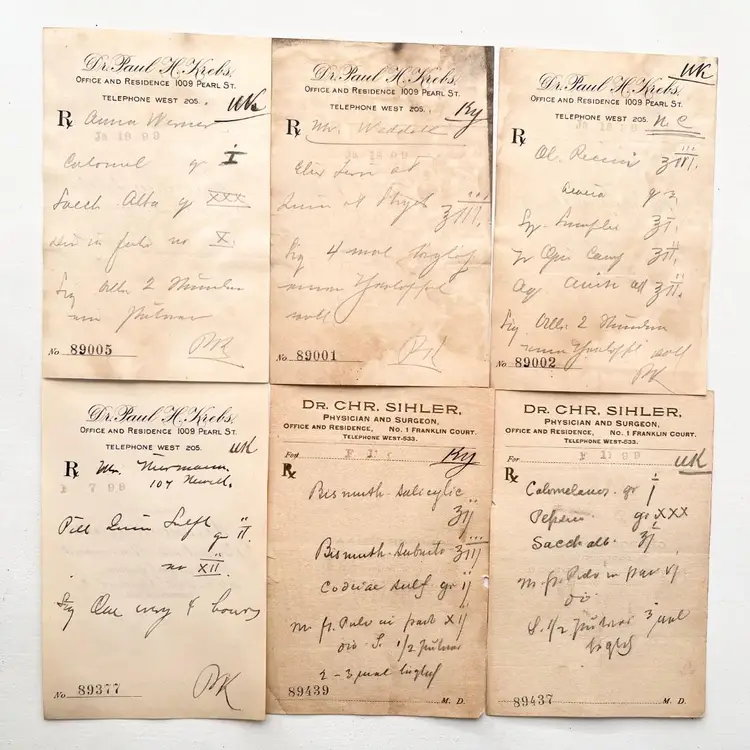 Dr. Paul H. Krebs,
OFFICE AND RESIDENCE 1009 PEARL ST.
TELEPHONE WEST 205.
UK
Rx Anna Werner
JA 19 99
Calomel gr I
Sacch Alba gr XXX
no X.
Sig Alle 2 Stunden
ein Pulver
PK
No. 89005
Dr. Paul H. Krebs,
OFFICE AND RESIDENCE 1009 PEARL ST.
TELEPHONE WEST 205.
Ky
Rx Mr. Waddell
JA 19 99
et
ʒIII.
Sig 4 mal täglich
einen Theelöffel
voll
PK
No. 89001
Dr. Paul H. Krebs,
OFFICE AND RESIDENCE 1009 PEARL ST.
TELEPHONE WEST 205.
UK
N.C
Rx
Ol. Ricini ʒIII.
Acacia
Syr. Simplic
Tr Opii Camp
Aq
Sig Alle 2 Stunden
einen Theelöffel voll
PK
No. 89002
Dr. Paul H. Krebs,
OFFICE AND RESIDENCE 1009 PEARL ST.
TELEPHONE WEST 205.
UK
Rx Mr.
107
7 99
Pill Quin Sulft
gr II.
no XII.
Sig One every 4 hours
PK
No. 89377
DR. CHR. SIHLER,
PHYSICIAN AND SURGEON,
OFFICE AND RESIDENCE, No. 1 FRANKLIN COURT.
TELEPHONE WEST-533.
For
Ky
Rx
Bismuth-Salicylic
ʒII
Bismuth-Subnitr ʒIII
Codeiae Sulf gr II
M ft. Pulv in part XII
div S. 1/2 Pulver
2-3 mal täglich
89439
M. D.
DR. CHR. SIHLER,
PHYSICIAN AND SURGEON,
OFFICE AND RESIDENCE, No. 1 FRANKLIN COURT.
TELEPHONE WEST-533.
For
99
UK
Rx
Calomelanos gr I
Pepsin gr XXX
Sacch alb. ʒI
M ft. Pulv in part VI
div
S. 1/2 Pulver 3 mal
täglich
89437
M. D.